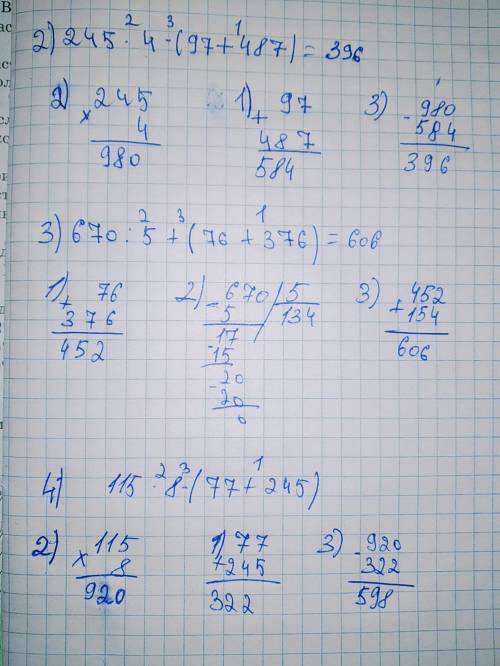 2) 245 · 4 - (97 + 487) = 396
2 3 1
2) 245 × 4 = 980
1) 97 + 487 = 584
3) 980 - 584 = 396
3) 670 : 5 + (76 + 376) = 606
2 3 1
1) 76 + 376 = 452
2) 670 | 5
5 134
17
15
20
20
0
3) 452 + 154 = 606
4) 115 · 8 - (77 + 245)
2 3 1
2) 115 × 8 = 920
1) 77 + 245 = 322
3) 920 - 322 = 598